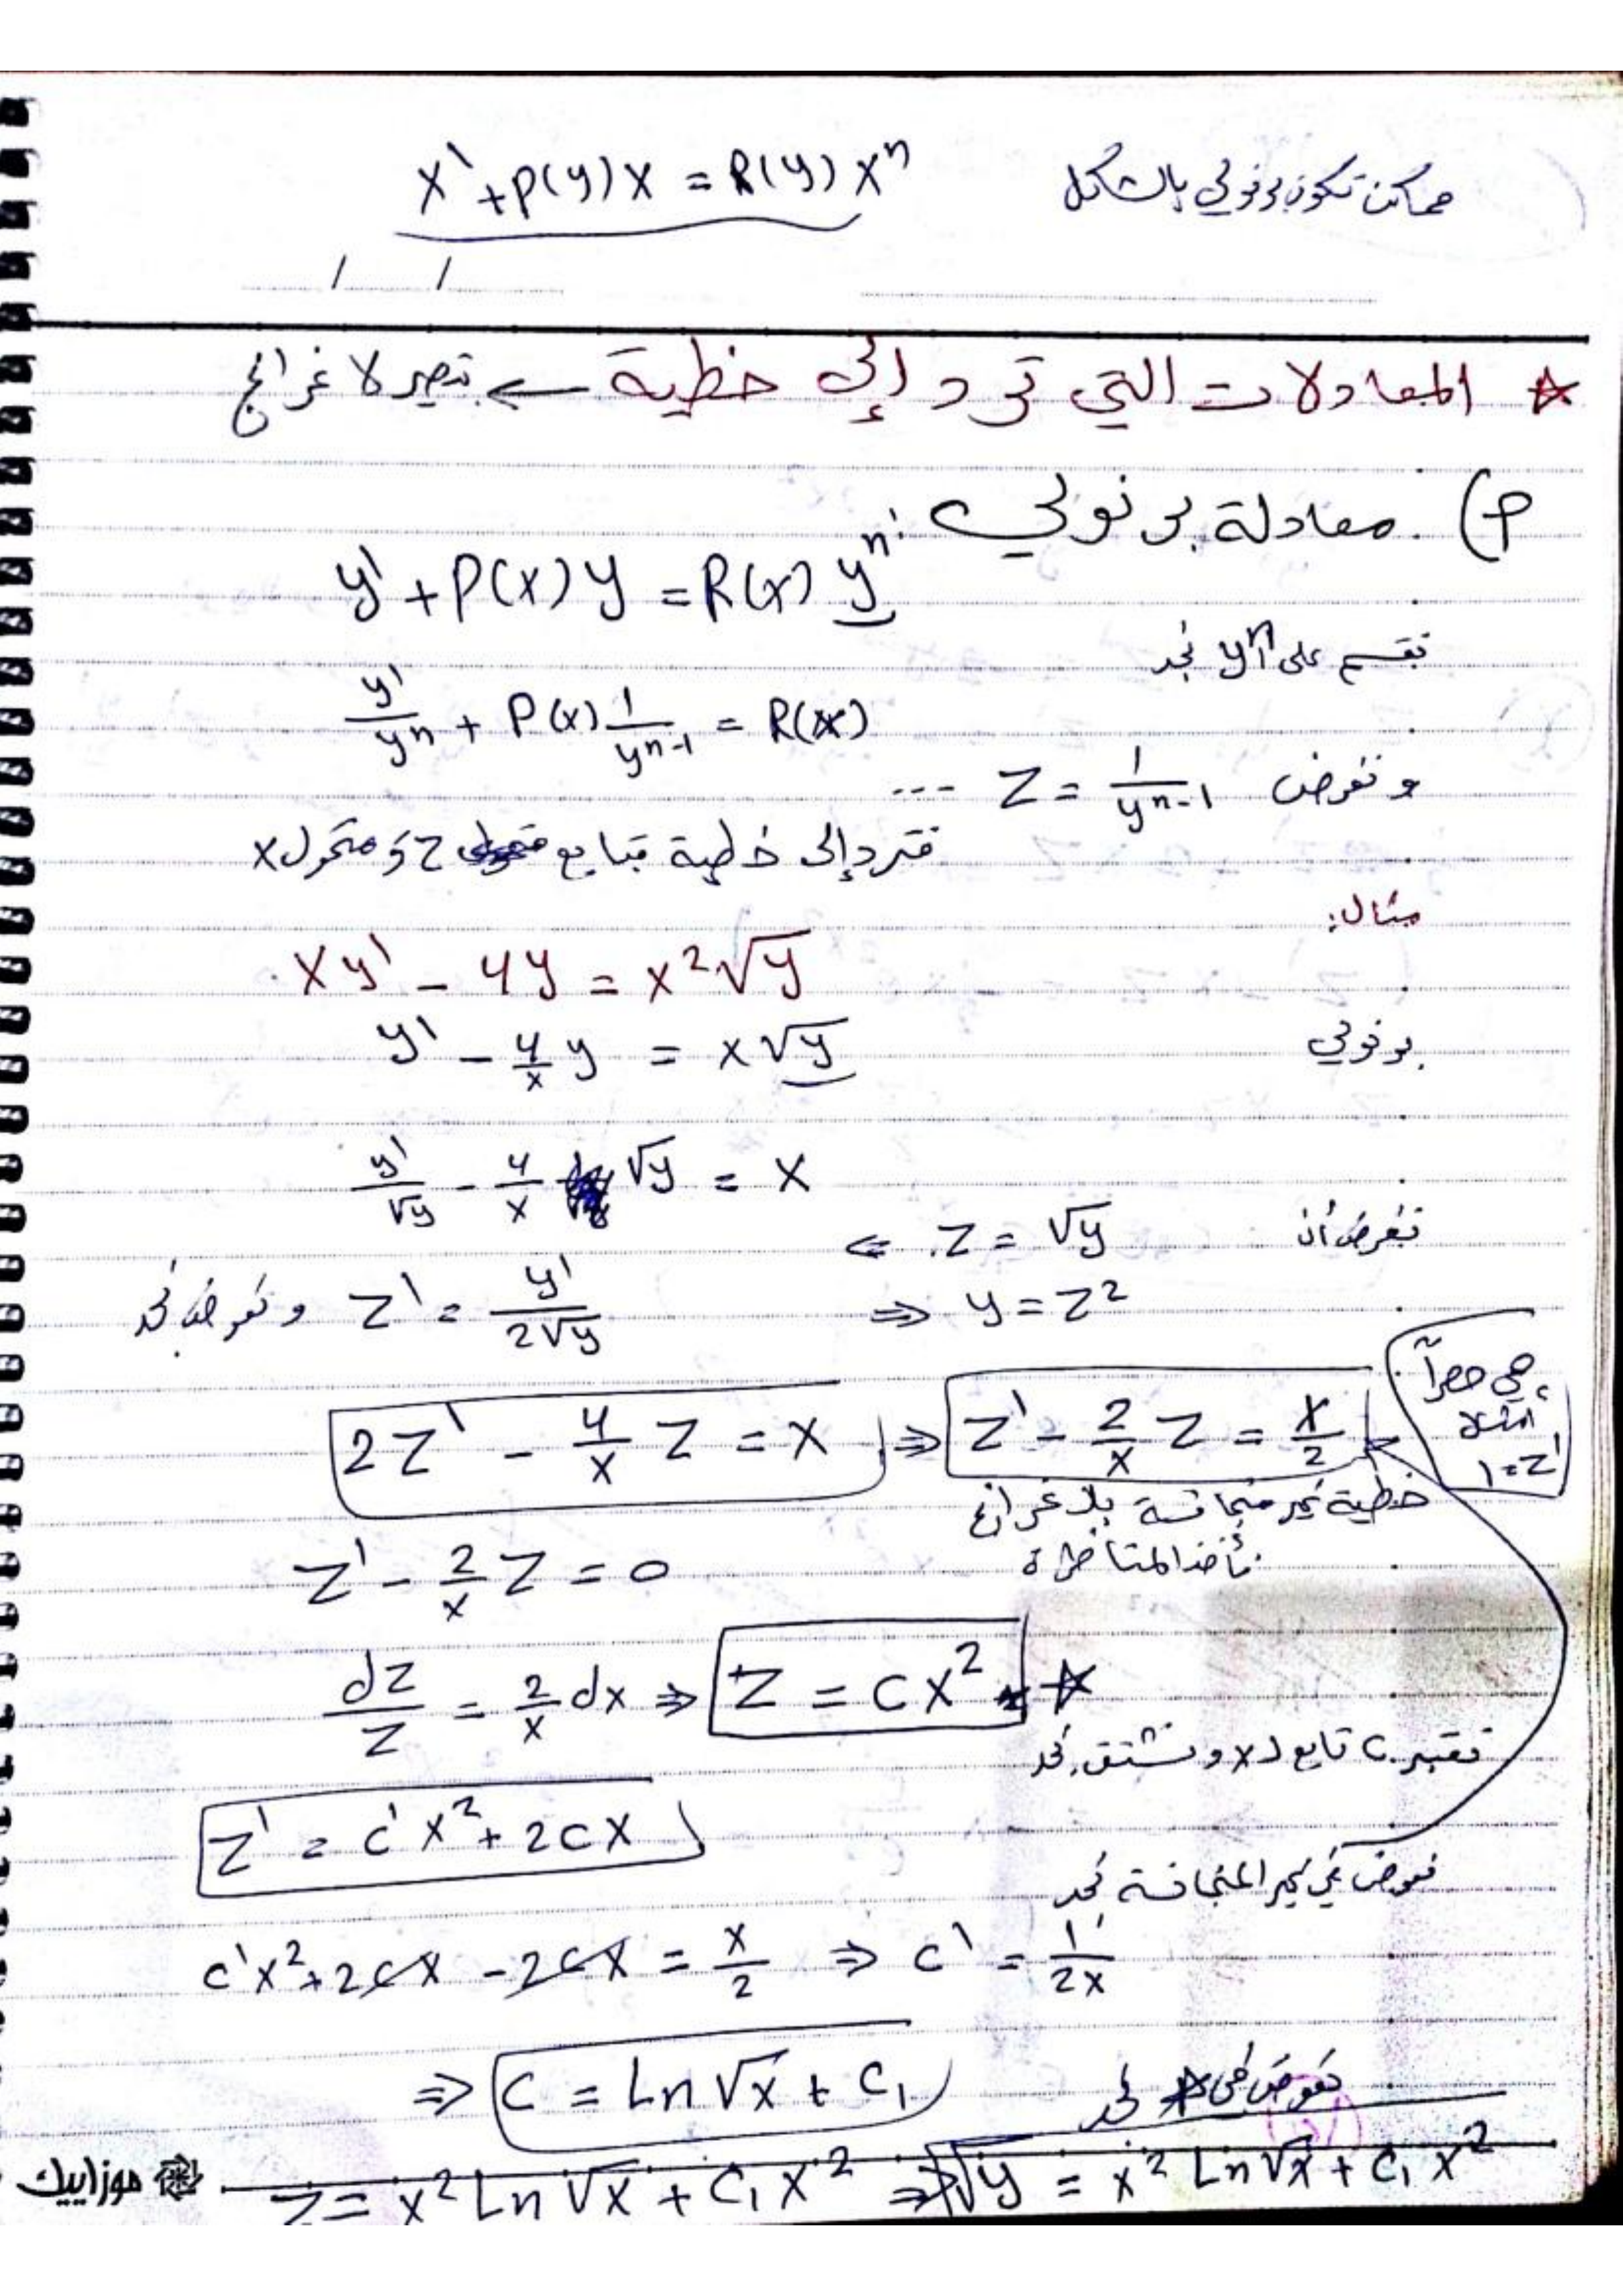 ممكن تكون برنولي بالشكل x' + p(y)x = R(y)x^n
/ /
☆ المعادلات التي ترد إلى خطية ← بتصير لاغرانج
P) معادلة برنولي:
y' + P(x)y = R(x)y^n
نقسم على y^n نجد
y'/y^n + P(x) 1/y^(n-1) = R(x)
ونفرض Z = 1/y^(n-1) ...
فترد إلى خطية بتابع Z ومتحول x
مثال:
xy' - 4y = x²√y
برنولي y' - 4/x y = x√y
y'/√y - 4/x √y = x
نفرض أن Z = √y ⇐
⇒ y = Z² Z' = y'/2√y ونعوض نجد
2Z' - 4/x Z = x ⇒ Z' - 2/x Z = x/2
هي حصراً
أمثال
Z' = 1
خطية غير متجانسة بلاغرانج
نأخذ المتناظرة
Z' - 2/x Z = 0
dZ/Z = 2/x dx ⇒ Z = cx² ☆
نعتبر c تابع لـ x ونشتق نجد
Z' = c'x² + 2cx
نعوض في غير المتجانسة نجد
c'x² + 2cx - 2cx = x/2 ⇒ c' = 1/2x
⇒ C = Ln√x + C₁
نعوض في ☆ نجد
Z = x² Ln√x + C₁x² ⇒ √y = x² Ln√x + C₁x²
موزاييك